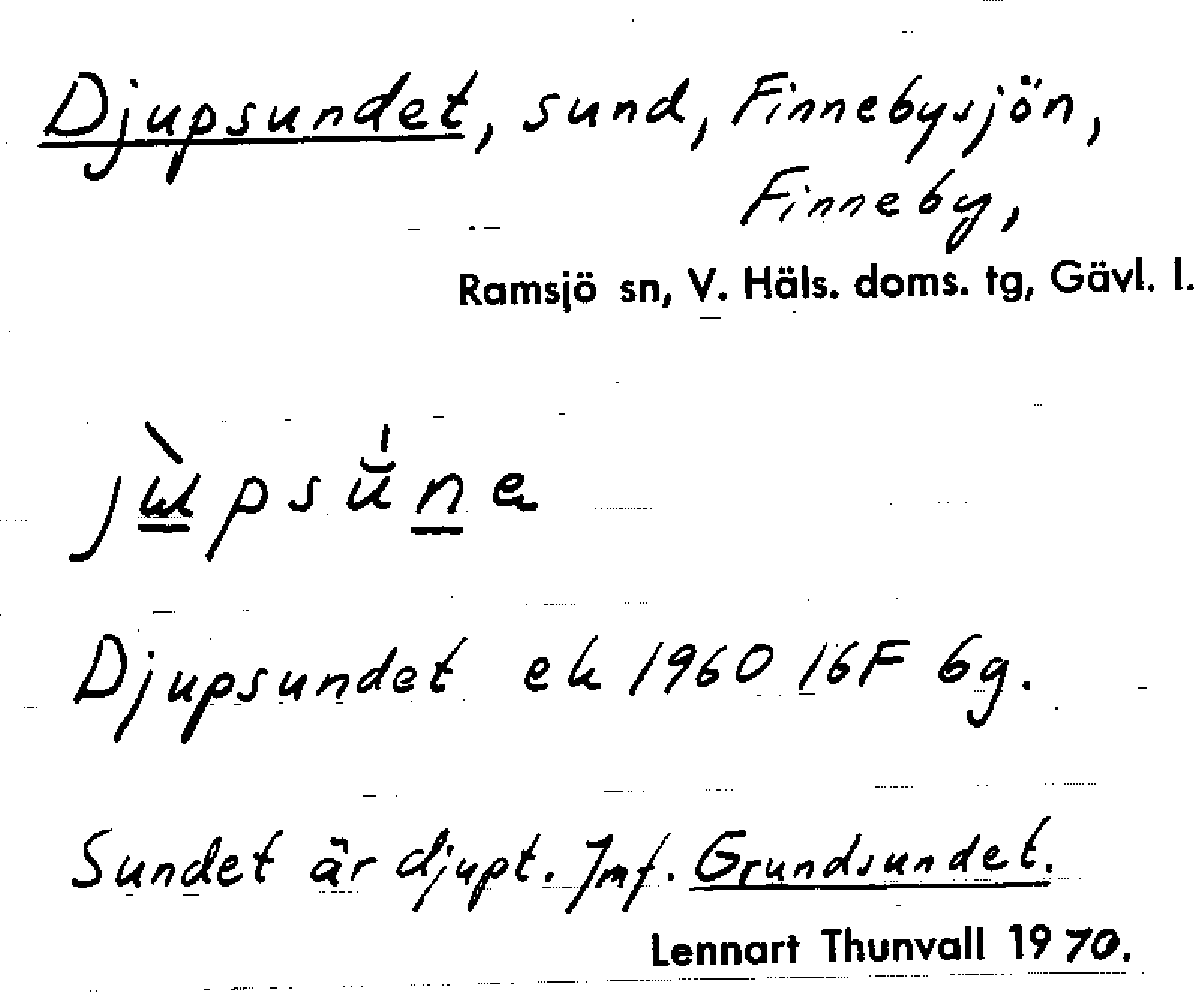 Djupsundet, sund, Finnebysjön,
Finneby,
Ramsjö sn, V. Häls. doms. tg, Gävl. l.
Djupsundet ek 1960 16F 6g.
Sundet är djupt. Jmf. Grundsundet.
Lennart Thunvall 1970.